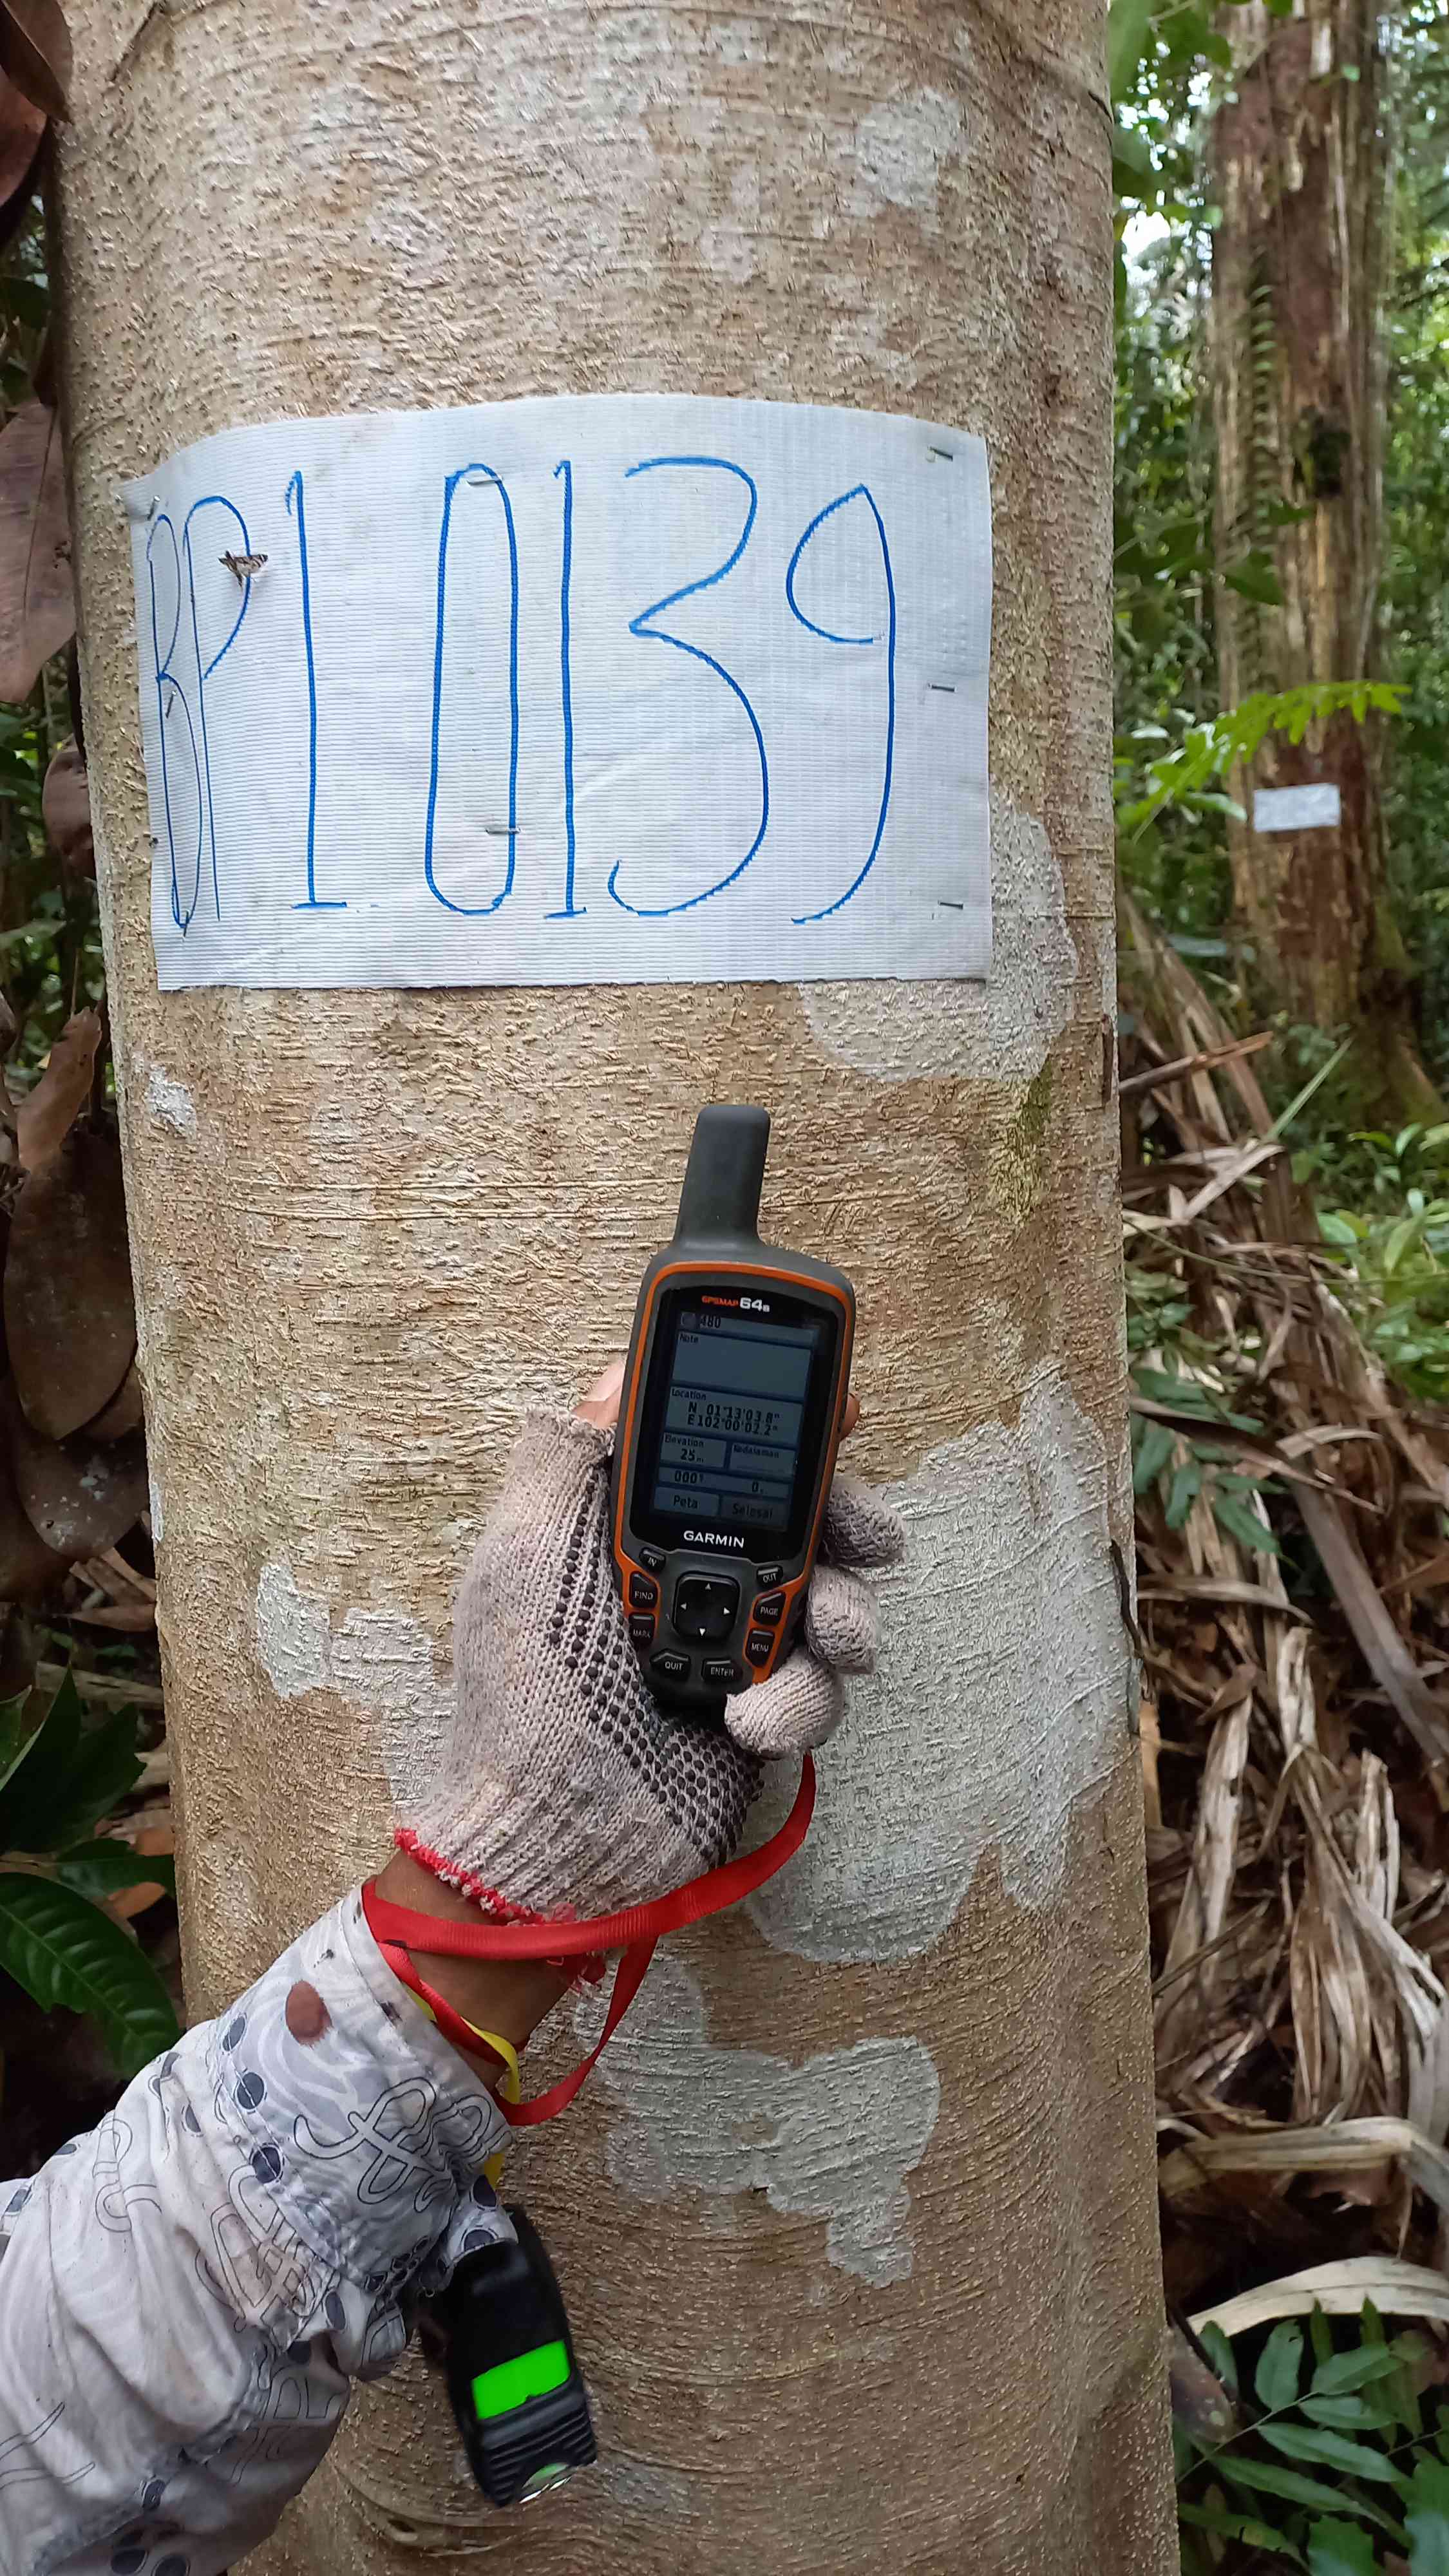 BP1 0139
GPSMAP 64s
480
Note
Location
N 01°13'03.8"
E102°00'02.2"
Elevation
Kedalaman
25
000°
0
Peta
Selesai
GARMIN
IN
OUT
FIND
PAGE
MARK
MENU
QUIT
ENTER